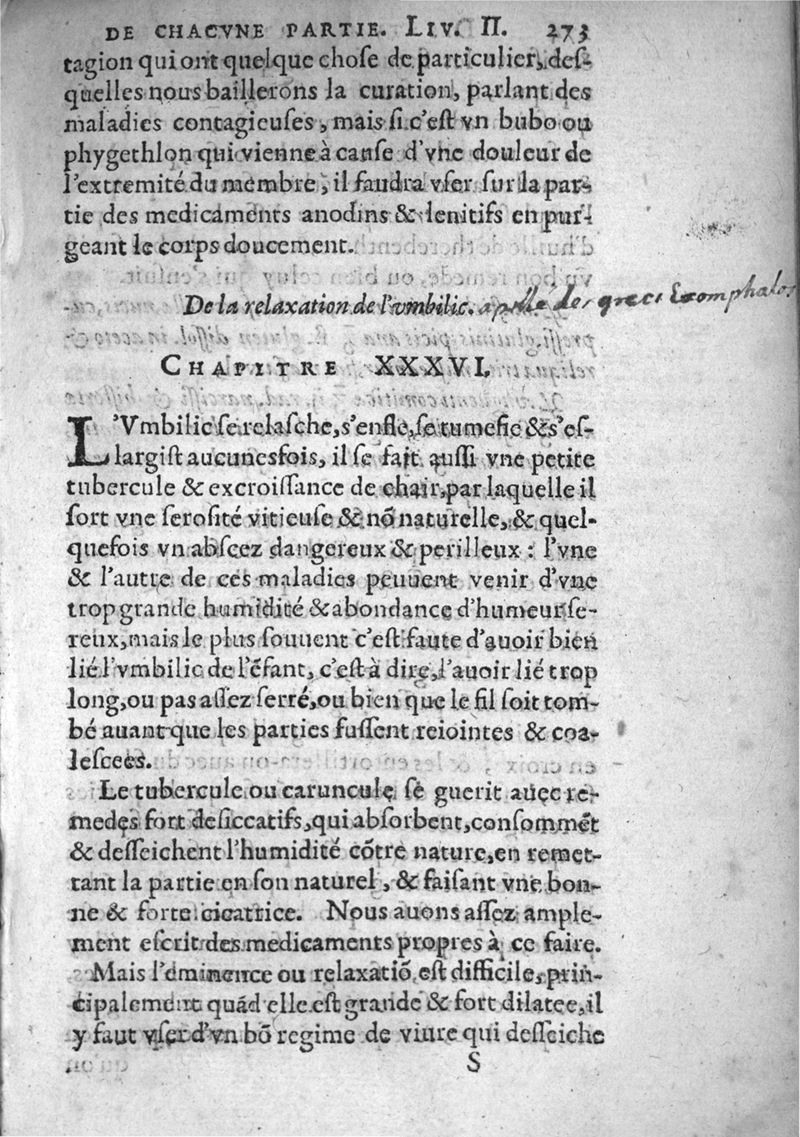 DE CHACVNE PARTIE. LIV. II. 273
tagion qui ont quelque choſe de particulier, deſ-
quelles nous baillerons la curation, parlant des
maladies contagieuſes, mais ſi c'eſt vn bubo ou
phygethlon qui vienne à cauſe d'vne douleur de
l'extremité du membre, il faudra vſer ſur la par-
tie des medicaments anodins & lenitifs en pur-
geant le corps doucement.
De la relaxation de l'vmbilic. apelle des grecs Exomphalos
CHAPITRE XXXVI.
L'Vmbilic ſe relaſche, s'enfle, ſe tumefie & s'eſ-
largiſt aucunesfois, il ſe fait auſſi vne petite
tubercule & excroiſſance de chair, par laquelle il
ſort vne ſeroſité vitieuſe & nõ naturelle, & quel-
quefois vn abſcez dangereux & perilleux : l'vne
& l'autre de ces maladies peuuent venir d'vne
trop grande humidité & abondance d'humeur ſe-
reux, mais le plus ſouuent c'eſt faute d'auoir bien
lié l'vmbilic de l'ẽfant, c'eſt à dire, l'auoir lié trop
long, ou pas aſſez ſerré, ou bien que le fil ſoit tom-
bé auant que les parties fuſſent reiointes & coa-
leſcees.
Le tubercule ou caruncule ſe guerit auec re-
medes fort deſiccatifs, qui abſorbent, conſommẽt
& deſſeichent l'humidité cõtre nature, en remet-
tant la partie en ſon naturel, & faiſant vne bon-
ne & forte cicatrice. Nous auons aſſez ample-
ment eſcrit des medicaments propres à ce faire.
Mais l'eminence ou relaxatiõ eſt difficile, prin-
cipalement quãd elle eſt grande & fort dilatee, il
y faut vſer d'vn bõ regime de viure qui deſſeiche
S